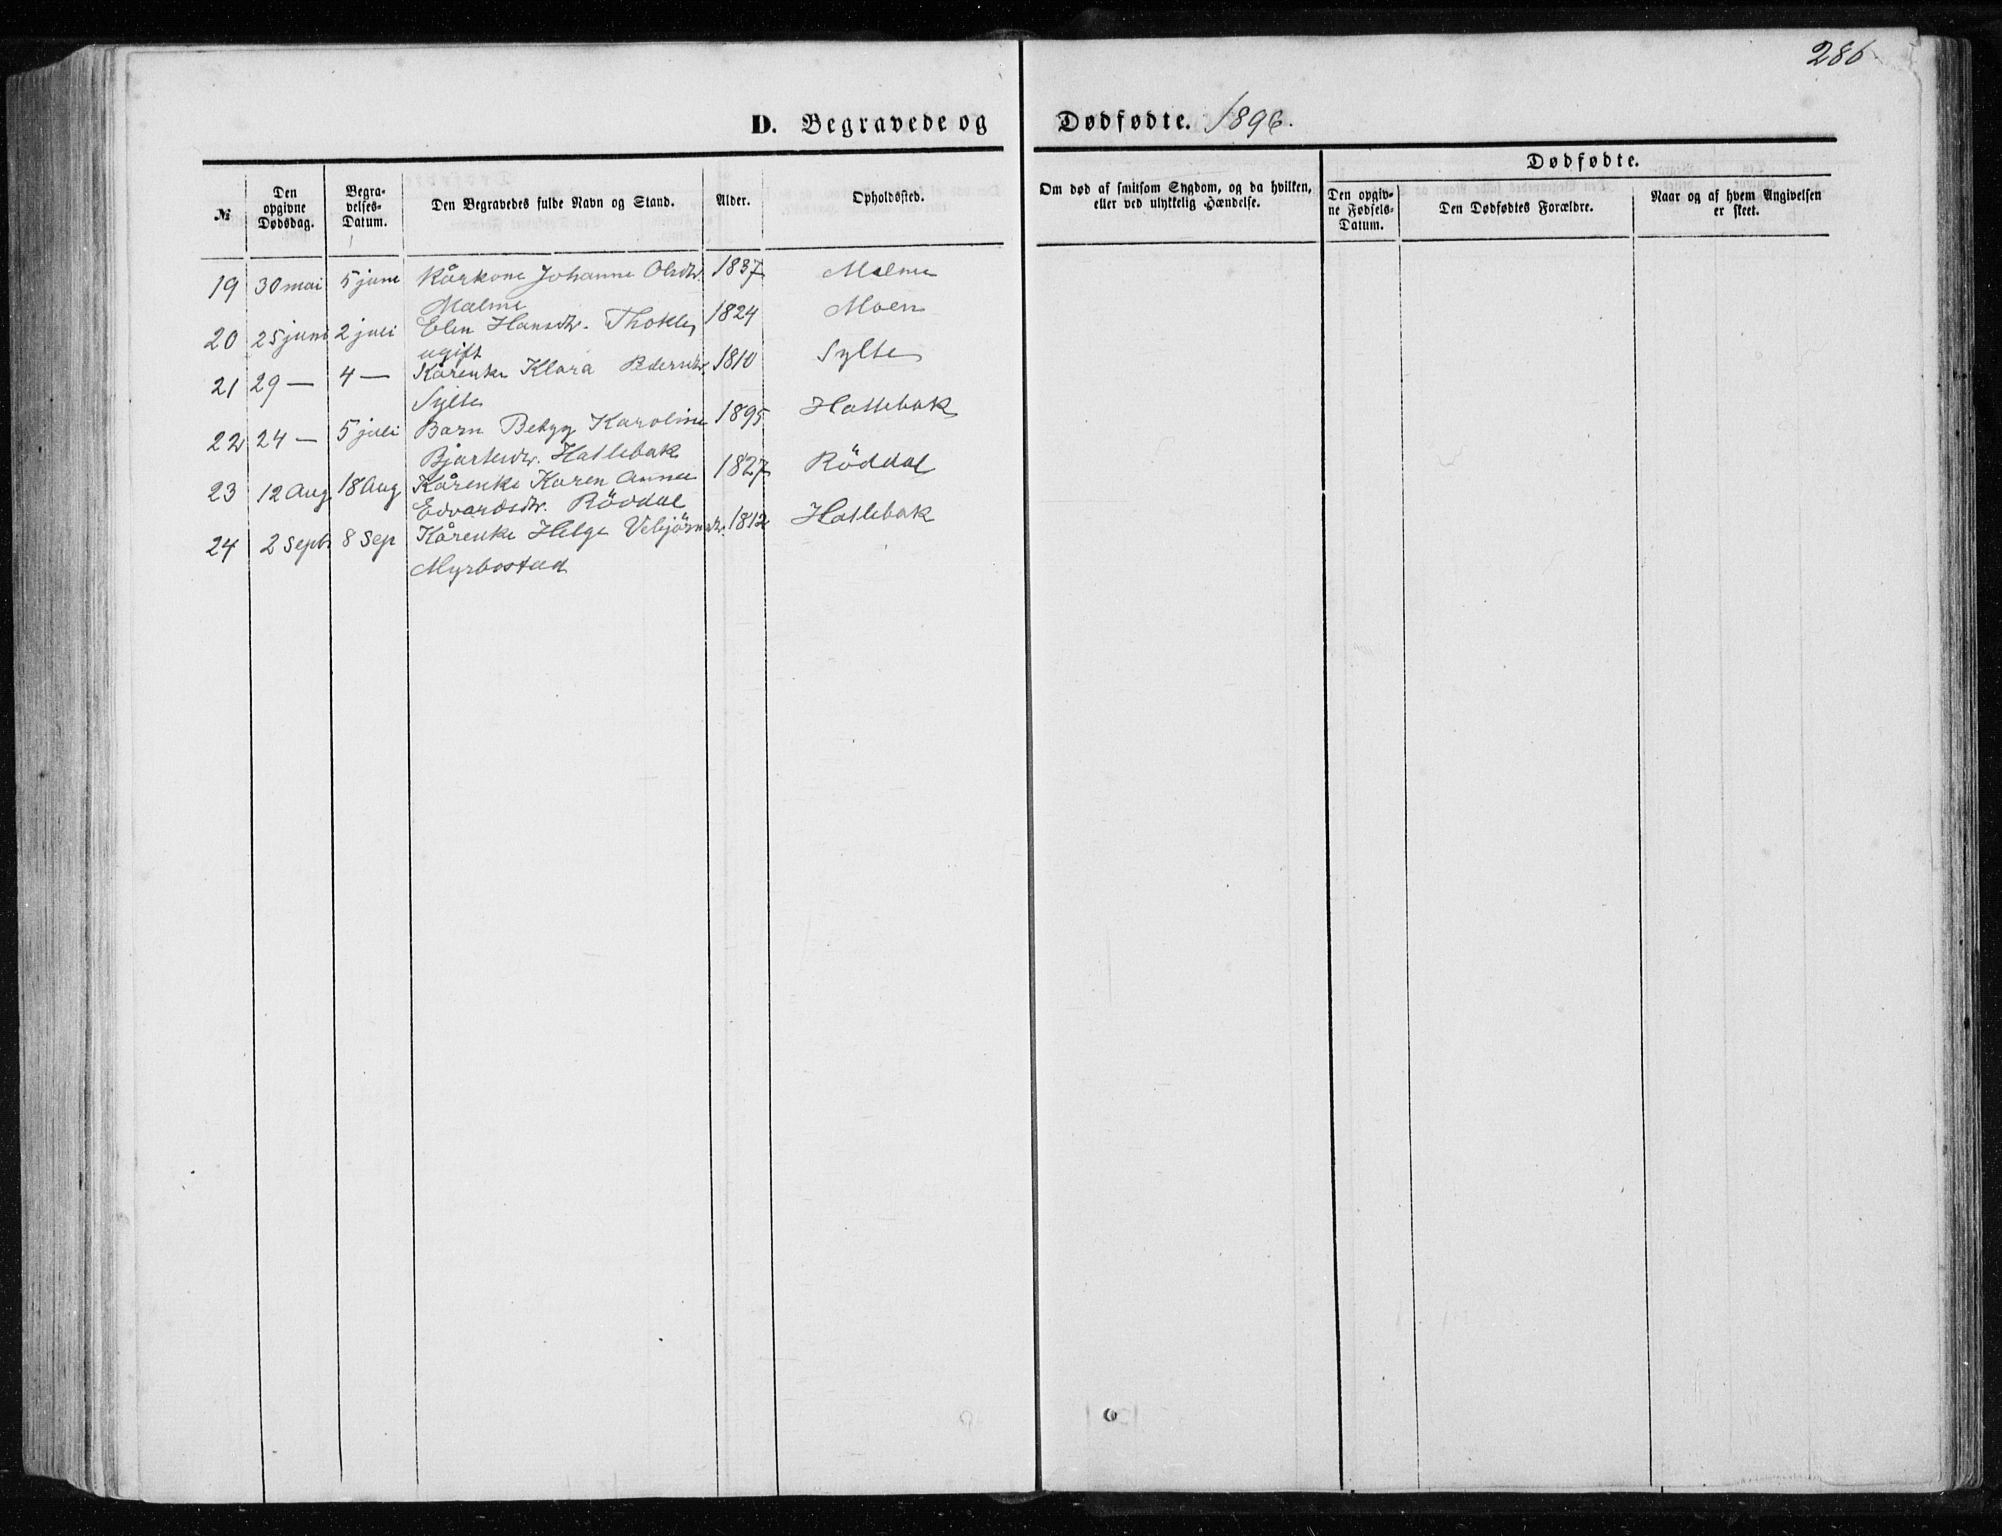 286
D. Begravede og Dødfødte. 1896.
Dødfødte.
№
Den opgivne Dødsdag.
Begravelses-Datum.
Den Begravedes fulde Navn og Stand.
Alder.
Opholdssted.
Om død af smitsom Sygdom, og da hvilken, eller ved ulykkelig Hændelse.
Den opgivne Fødsels-Datum.
Den Dødfødtes Forældre.
Naar og af hvem Angivelsen er skeet.
19 30 mai 5 juni Kårkone Johanne Olsdtr. 1837 Malme
Malme
20 25 juni 2 juli Elen Hansdtr. 1824 Moen
ugift
21 29 — 4 — Kårenke Klara Pedersdtr. 1810 Sylte
Sylte
22 24 — 5 juli Barn Karoline 1895 Hatlebak
Bjartesdtr. Hatlebak
23 12 Aug 18 Aug Kårenke Karen Anna 1827 Röddal
Edvardsdtr. Röddal
24 2 Septr 8 Sep Kårenke Helge Vebjörnsdtr. 1812 Hatlebak
Myrbostad